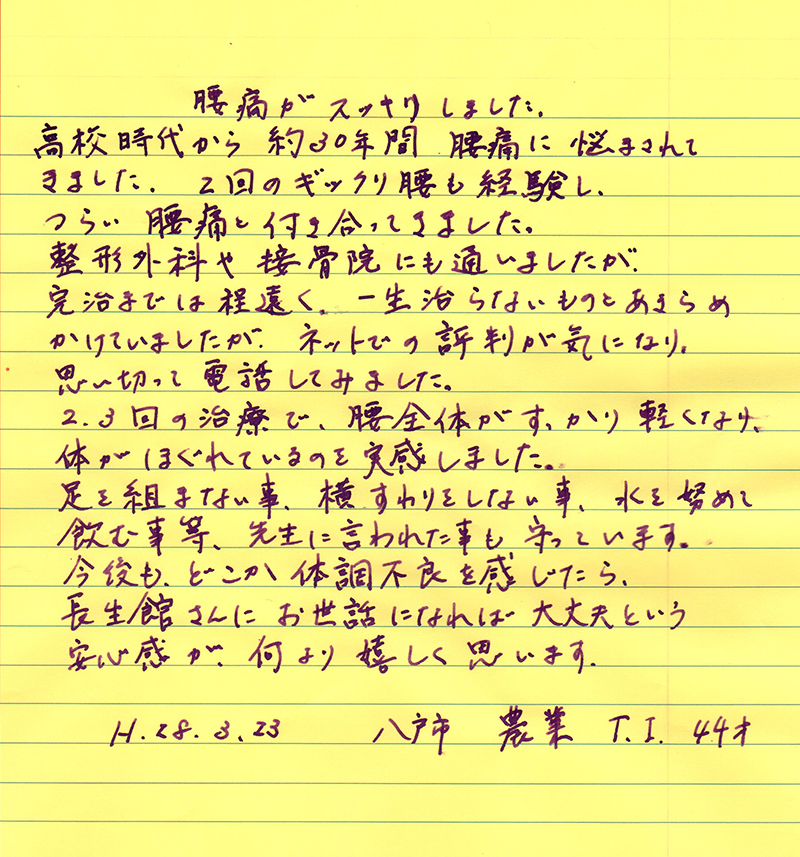 腰痛がスッキリしました.
高校時代から 約30年間 腰痛に 悩まされて
きました. 2回のギックリ腰も経験し.
つらい 腰痛と付き合ってきました。
整形外科や 接骨院にも通いましたが.
完治までは程遠く. 一生治らないものとあきらめ
かけていましたが. ネットでの評判が気になり.
思い切って 電話してみました。
2.3回の治療で、腰全体がすっかり 軽くなり.
体がほぐれているのを実感しました。
足を組まない事、横すわりをしない事、水を努めて
飲む事等、先生に言われた事も 守っています。
今後も、どこか体調不良を感じたら、
長生館さんに お世話になれば 大丈夫という
安心感が、何より嬉しく思います.
H.28.3.23 八戸市 農業 T.I. 44才